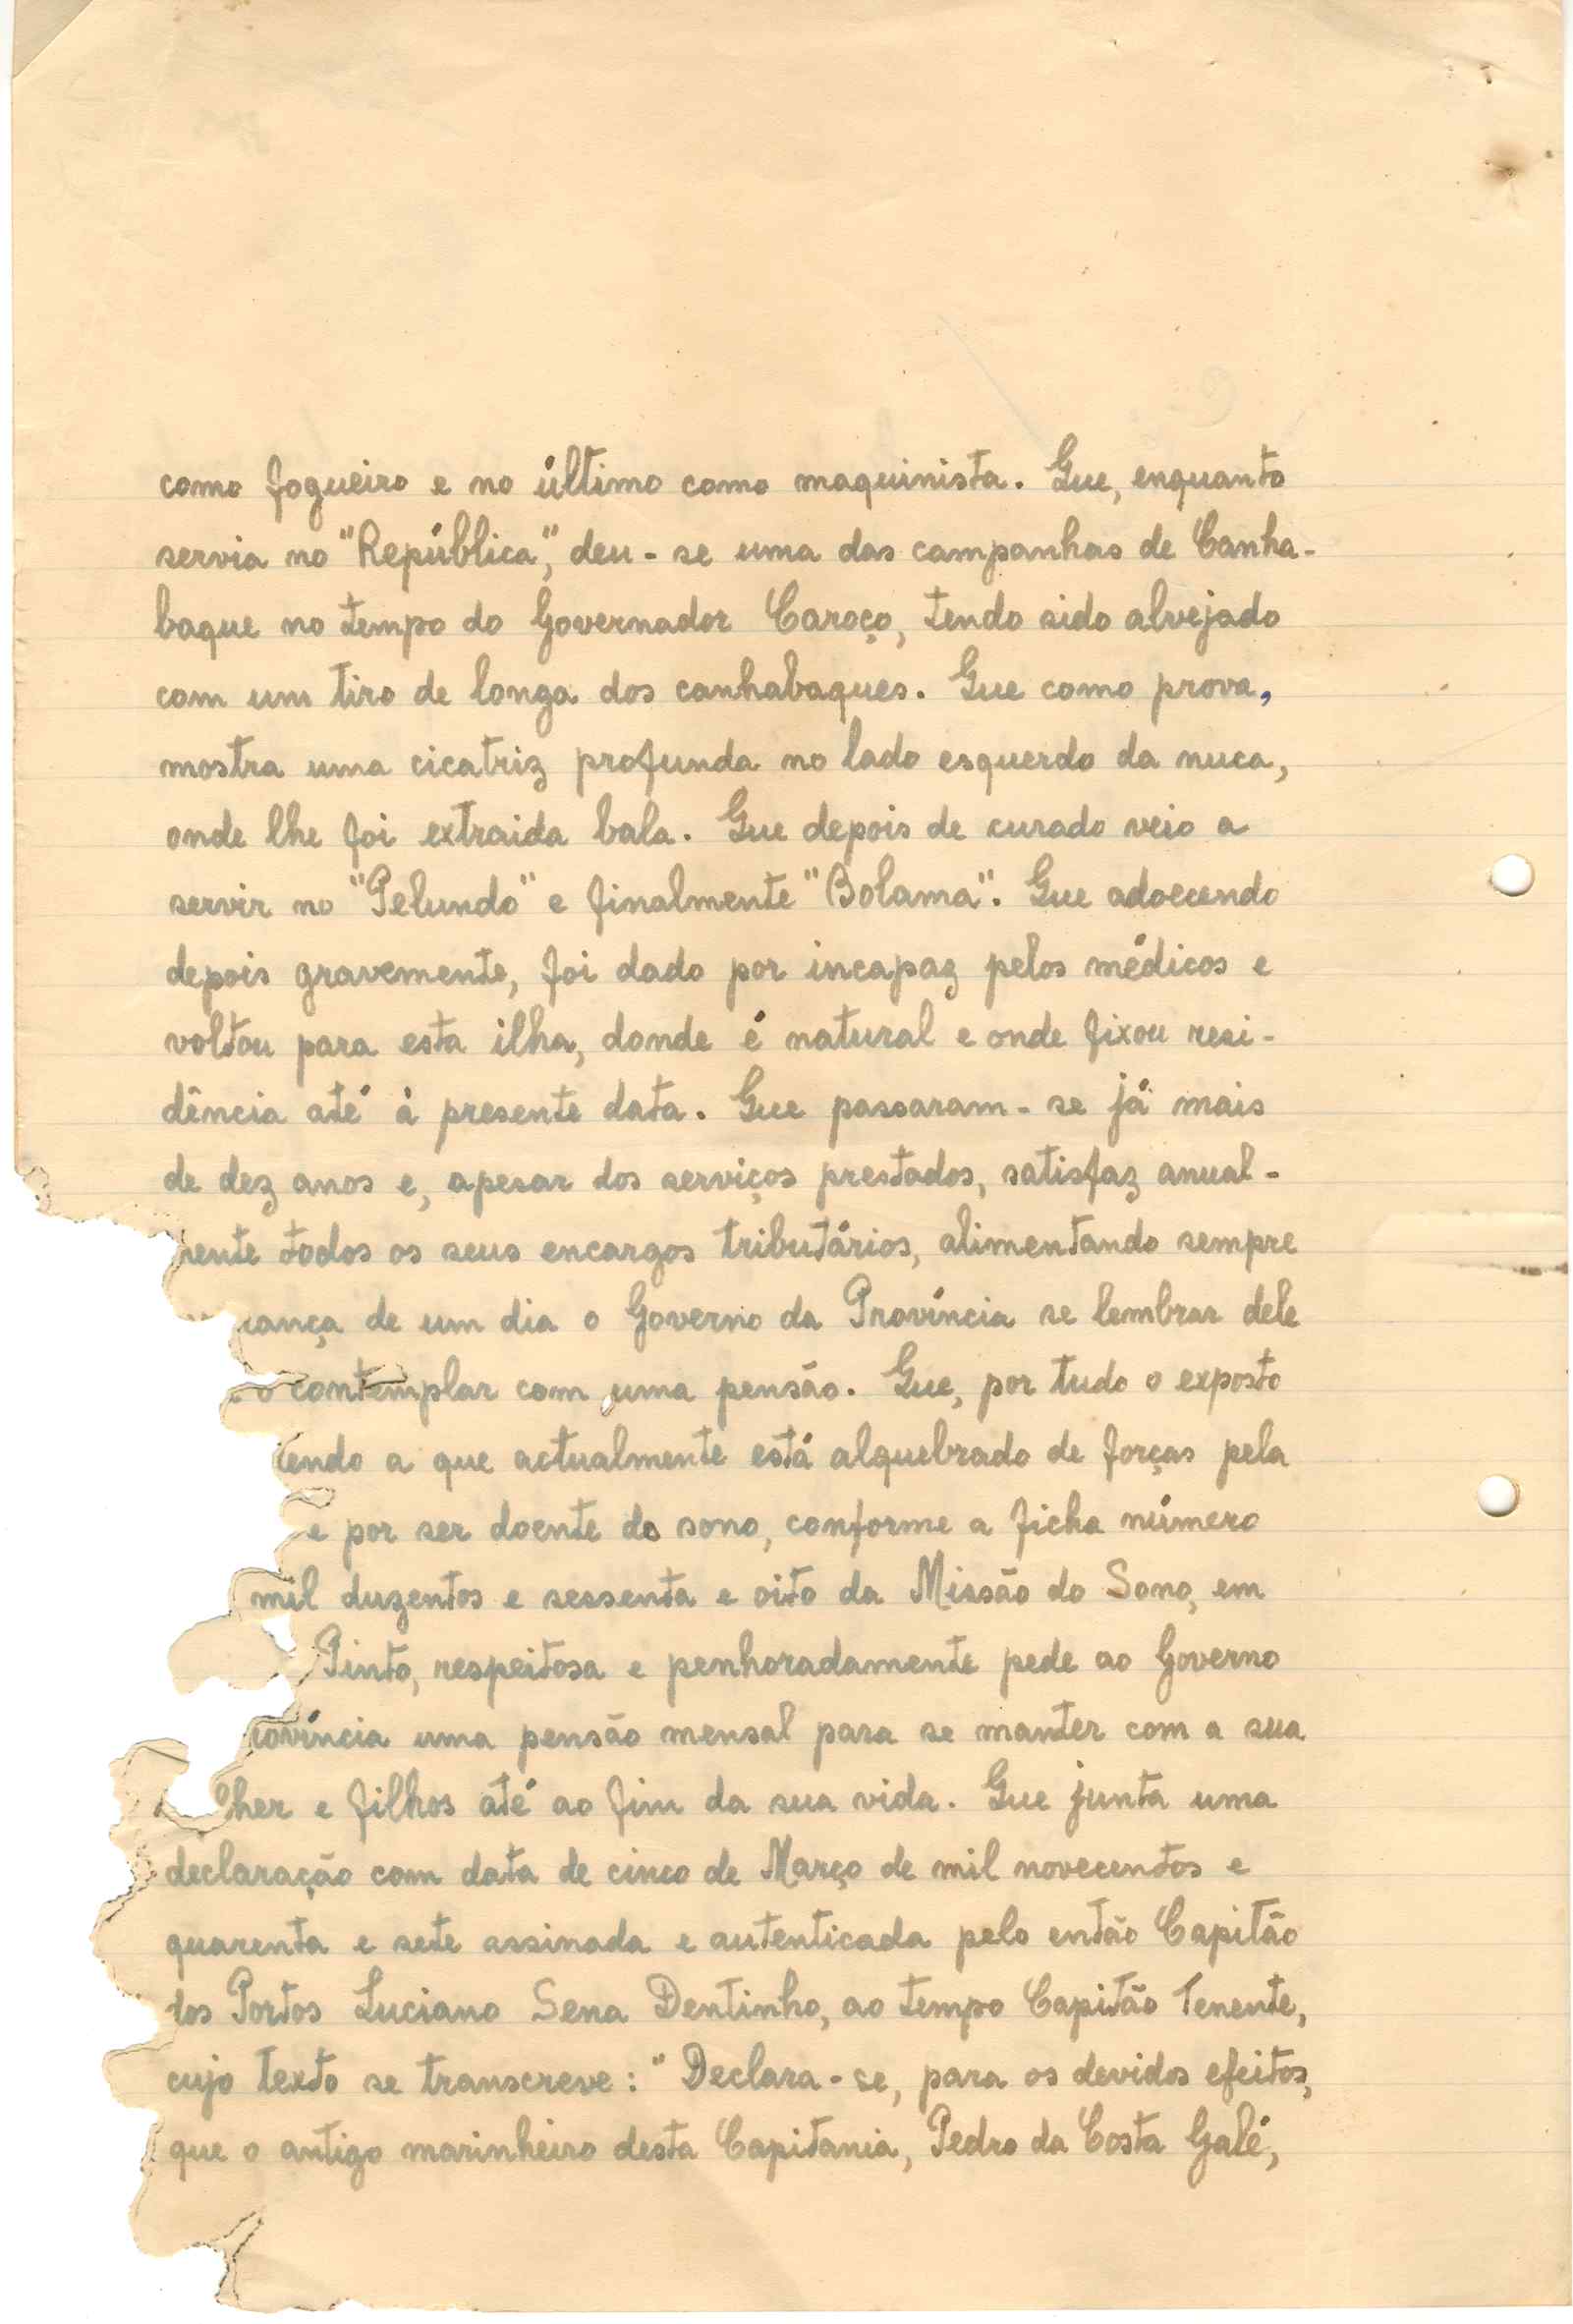 como fogueiro e no último como maquinista. Que, enquanto
servia no "República", deu-se uma das campanhas de Canha-
baque no tempo do Governador Caroço, tendo sido alvejado
com um tiro de longa dos canhabaques. Que como prova,
mostra uma cicatriz profunda no lado esquerdo da nuca,
onde lhe foi extraida bala. Que depois de curado veio a
servir no "Pelundo" e finalmente "Bolama". Que adoecendo
depois gravemente, foi dado por incapaz pelos médicos e
voltou para esta ilha, donde é natural e onde fixou resi-
dência até à presente data. Que passaram-se já mais
de dez anos e, apesar dos serviços prestados, satisfaz anual-
mente todos os seus encargos tributários, alimentando sempre
ança de um dia o Governo da Província se lembrar dele
e o contemplar com uma pensão. Que, por tudo o exposto
endo a que actualmente está alquebrado de forças pela
e por ser doente do sono, conforme a ficha número
mil duzentos e sessenta e oito da Missão do Sono, em
Pinto, respeitosa e penhoradamente pede ao Governo
rovíncia uma pensão mensal para se manter com a sua
lher e filhos até ao fim da sua vida. Que junta uma
declaração com data de cinco de Março de mil novecentos e
quarenta e sete assinada e autenticada pelo então Capitão
dos Portos Luciano Sena Dentinho, ao tempo Capitão Tenente,
cujo texto se transcreve: "Declara-se, para os devidos efeitos,
que o antigo marinheiro desta Capitania, Pedro da Costa Galé,